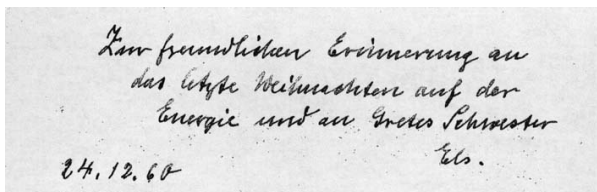 Zur freundlichen Erinnerung an
das letzte Weihnachten auf der
Energie und an Gretes Schwester
Els.
24.12.60